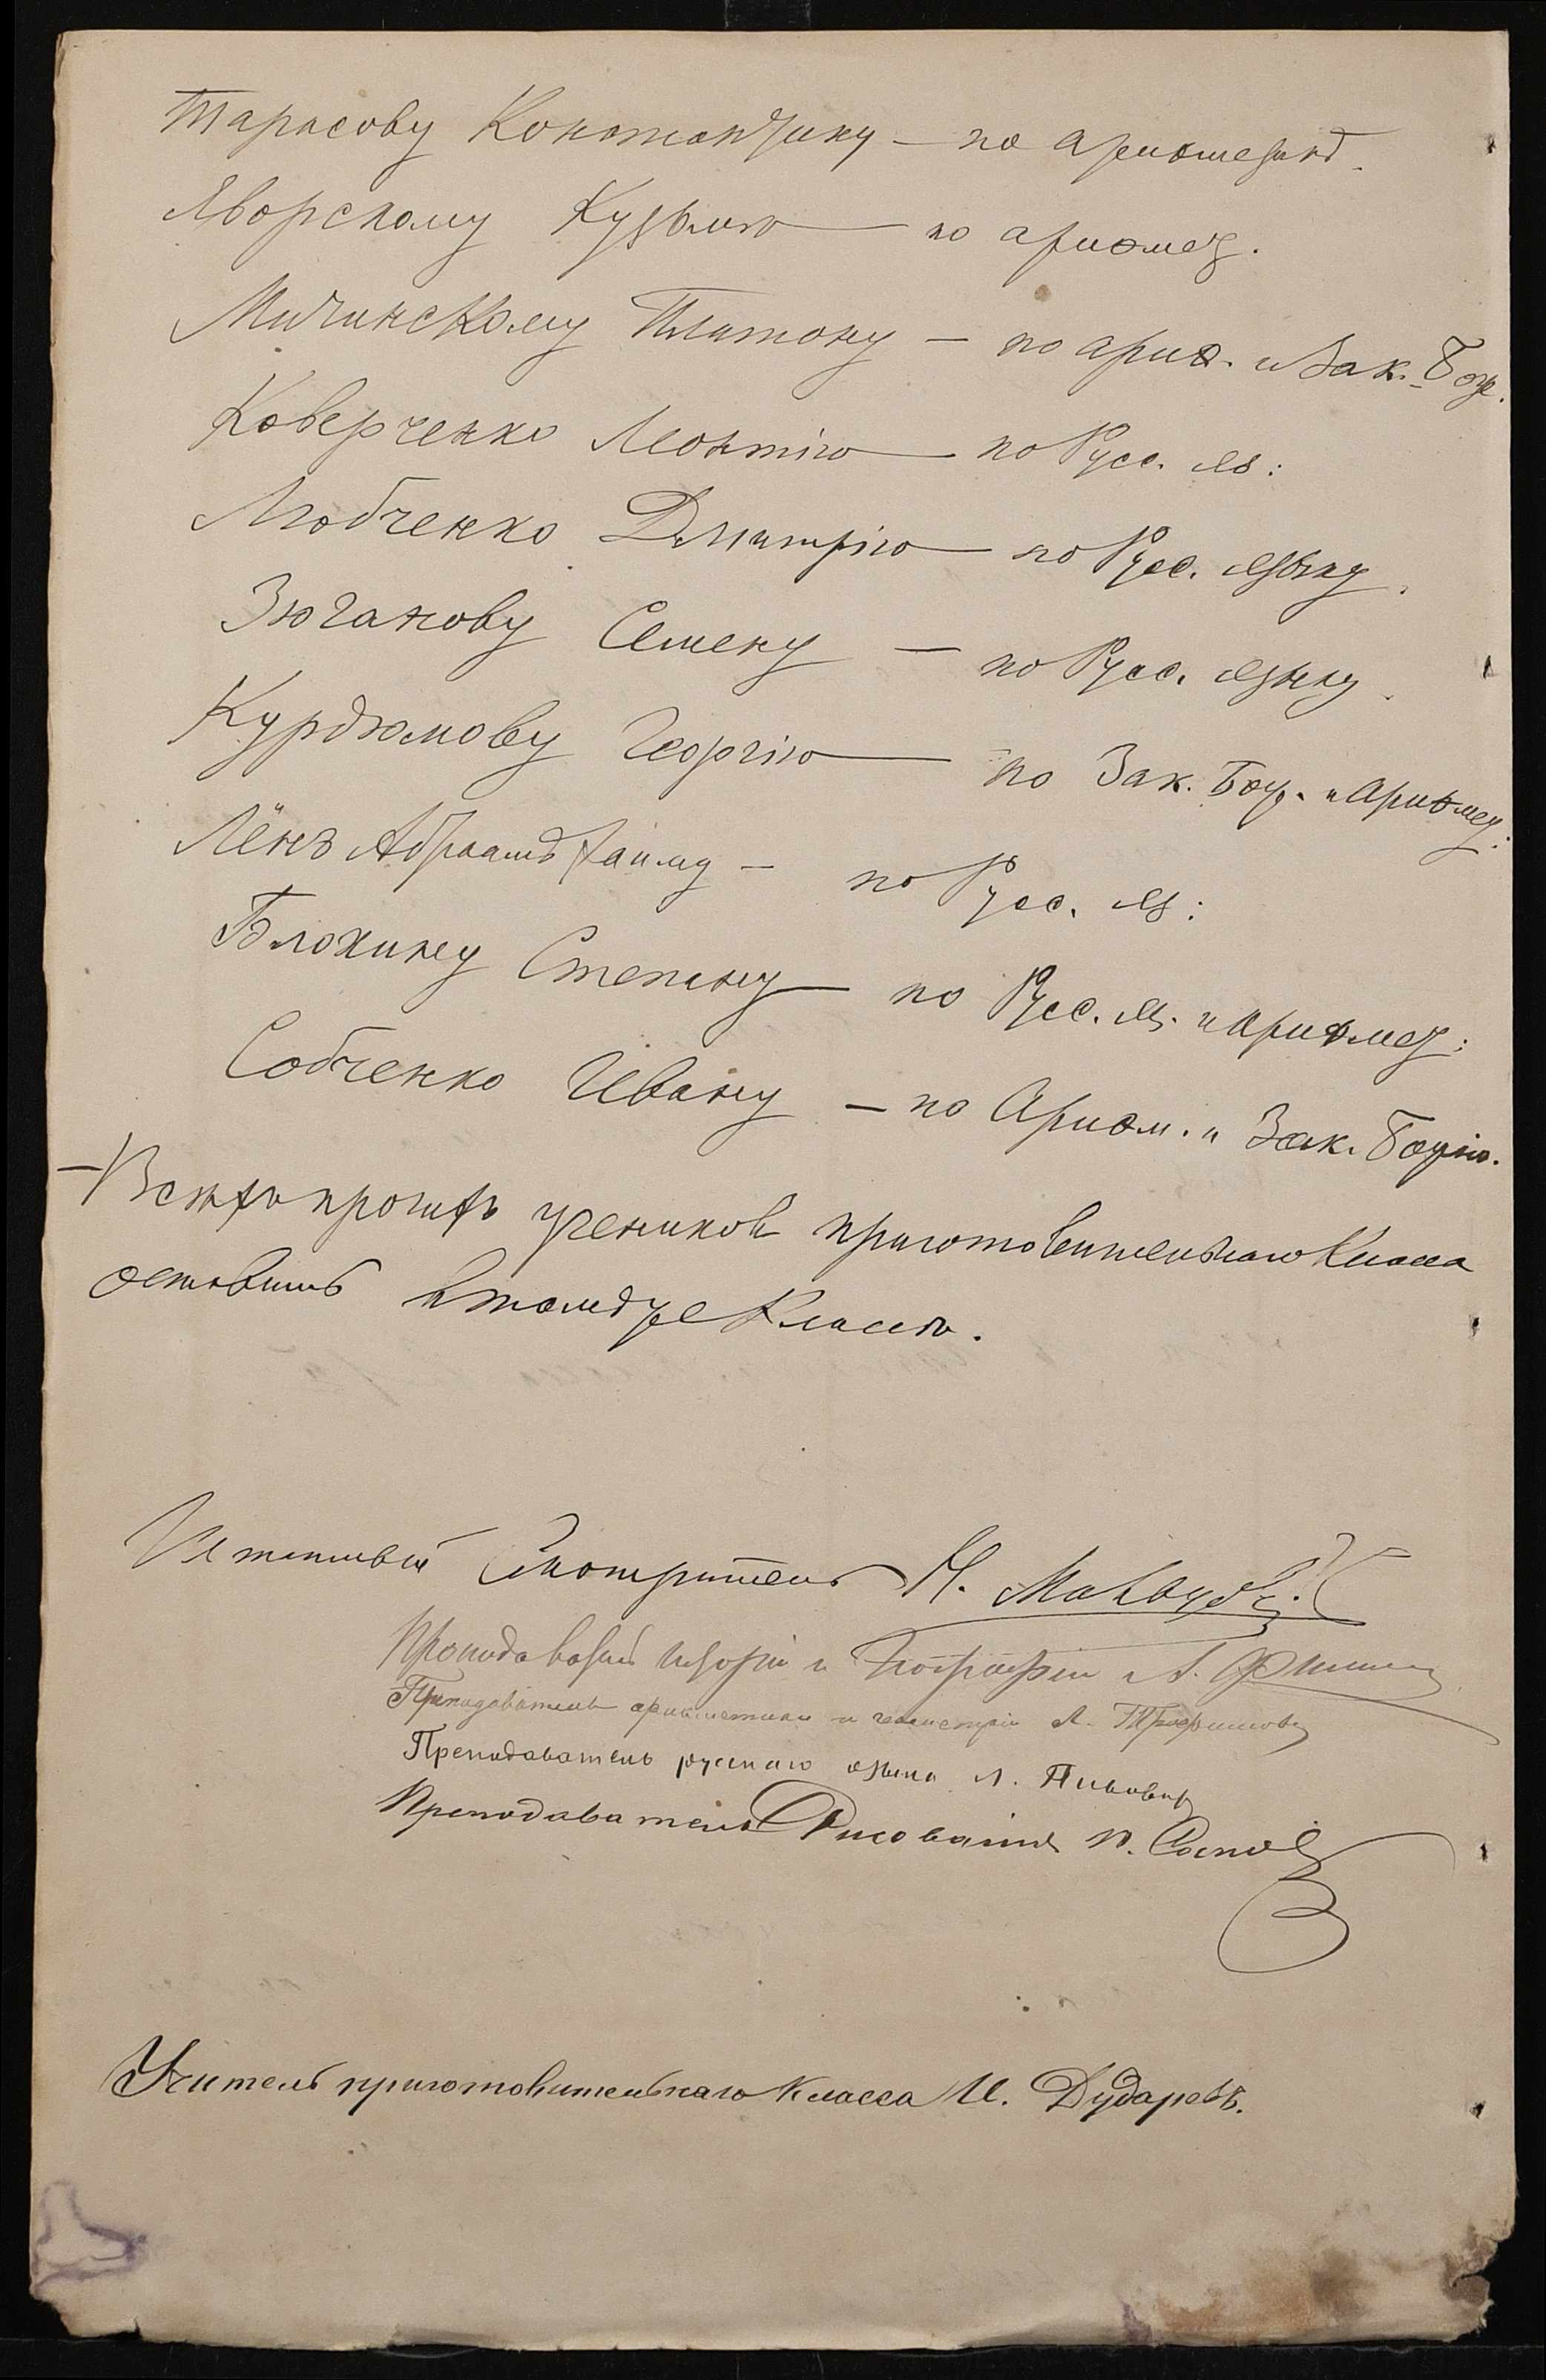 Тарасову Константину — по ариѳметикѣ.
Яворскому Кузьмѣ — по ариѳмет.
Мичинскому Платону — по ариѳ. и Зак. Бож.
Коверченко Леонтію — по Русс. яз:
Любченко Дмитрію — по Русс. языку.
Зюганову Семену — по Русс. языку.
Курдюмову Георгію — по Зак. Бож. и Ариѳмет:
Лёнъ Абраамъ Хаиму — по Русс. яз:
Блохину Степану — по Русс. яз. и Ариѳмет:
Собченко Ивану — по Ариѳм. и Зак. Божію.
— Всѣхъ прочихъ учениковъ приготовительнаго Класса
оставить въ томъ же Классѣ.
Штатный Смотритель
Преподаватель исторіи и географіи А.
Преподаватель ариѳметики и геометріи А.
Преподаватель русскаго языка
Преподаватель Рисованія
Учитель приготовительнаго класса И. Дударевъ.